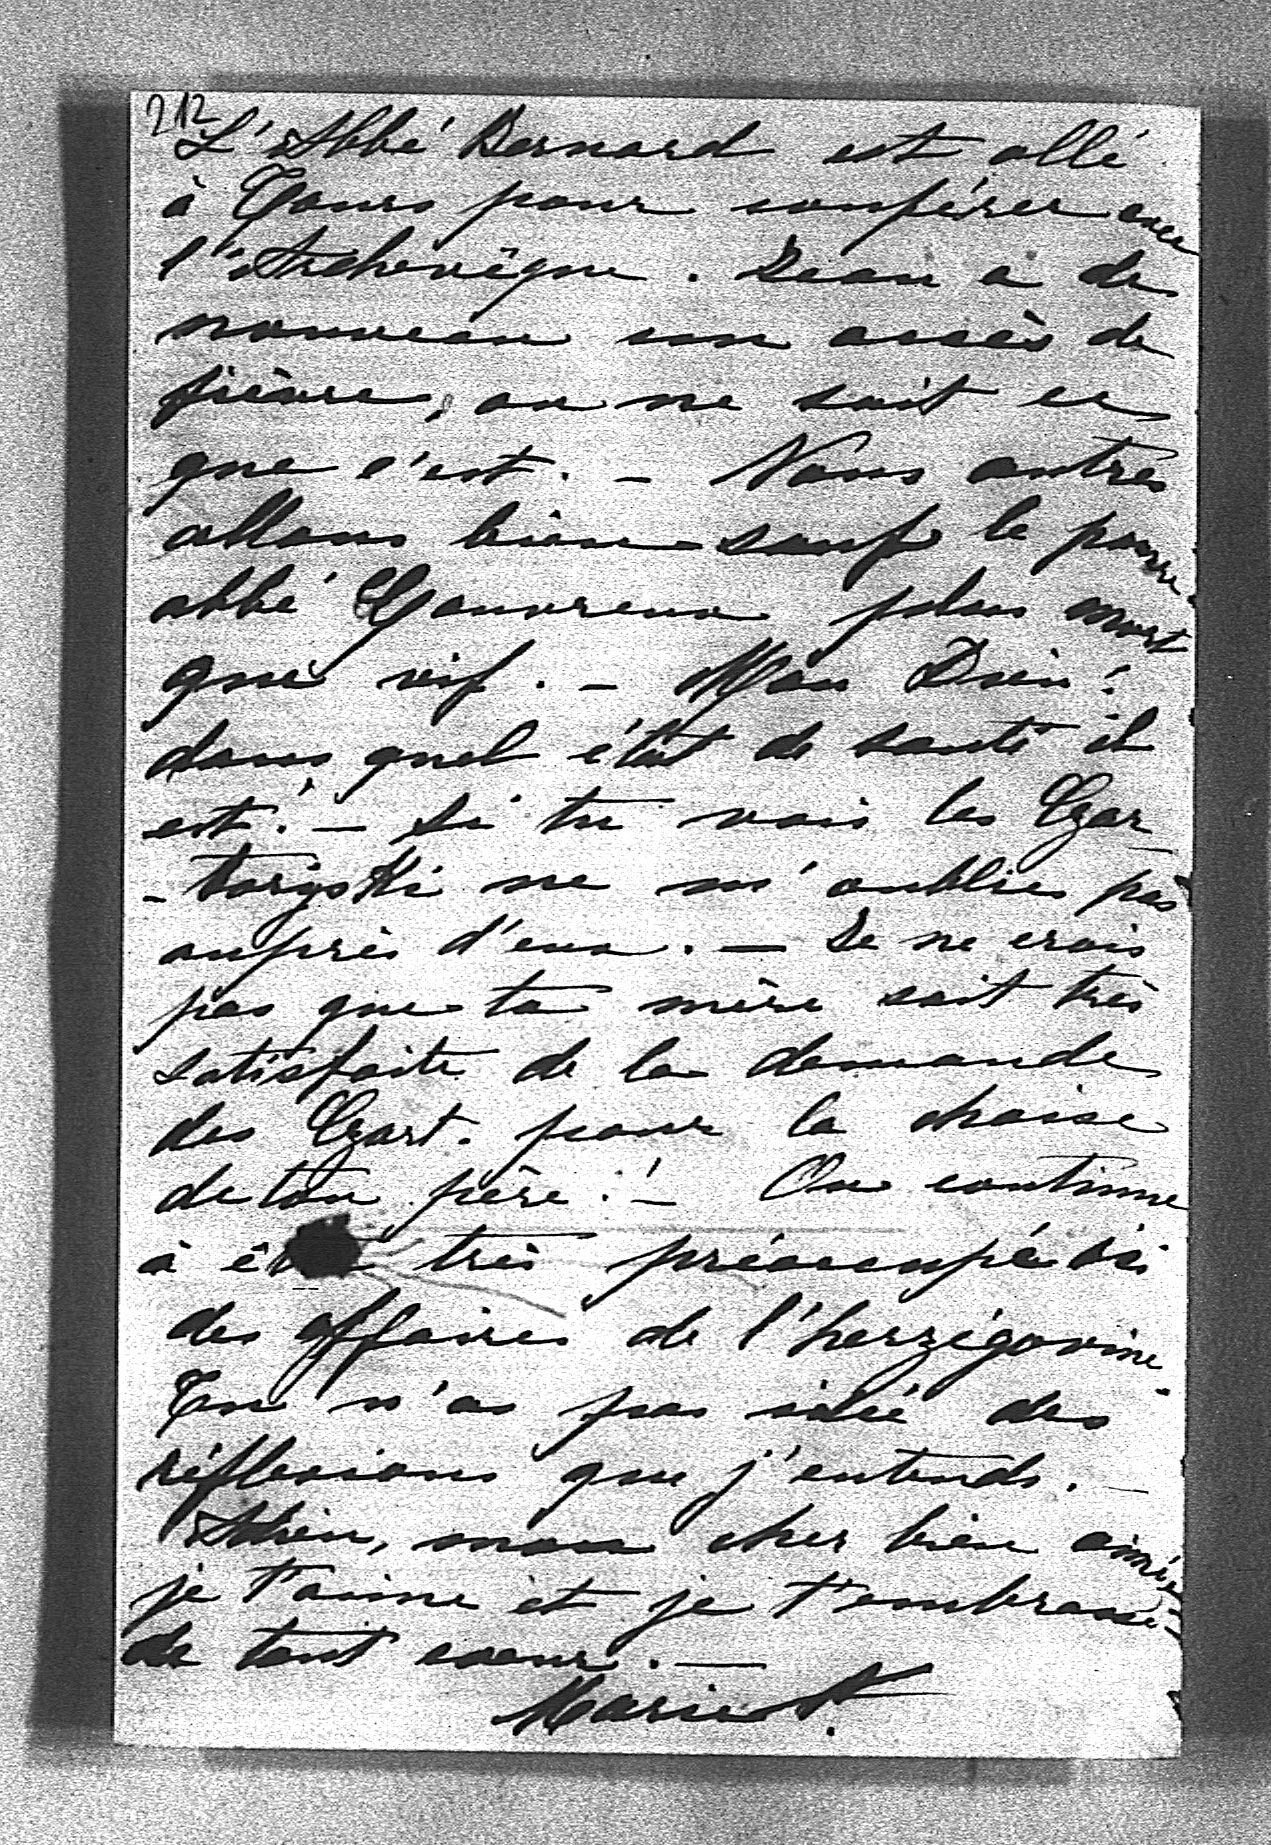 212
L'Abbé Bernard est allé
à Tours pour conférer avec
l'Archevêque. Jean a de
nouveau un accès de
fièvre, on ne sait ce
que c'est. - Nous autres
allons bien sauf le pauvre
abbé Gouvreux plus mort
que vif. - Mon Dieu!
dans quel état de santé il
est! - Si tu vois les Czar
- toryski ne m'oublies pas
auprès d'eux. - Je ne crois
pas que ta mère soit très
satisfaite de la demande
des Czart. pour la chaise
de ton père! - On continue
à être très préoccupé ici
des affaires de l'herzégovine.
Tu n'as pas idée des
réflexions que j'entends. -
Adieu, mon cher bien aimé
je t'aime et je t'embrasse
de tout coeur. -
Marie